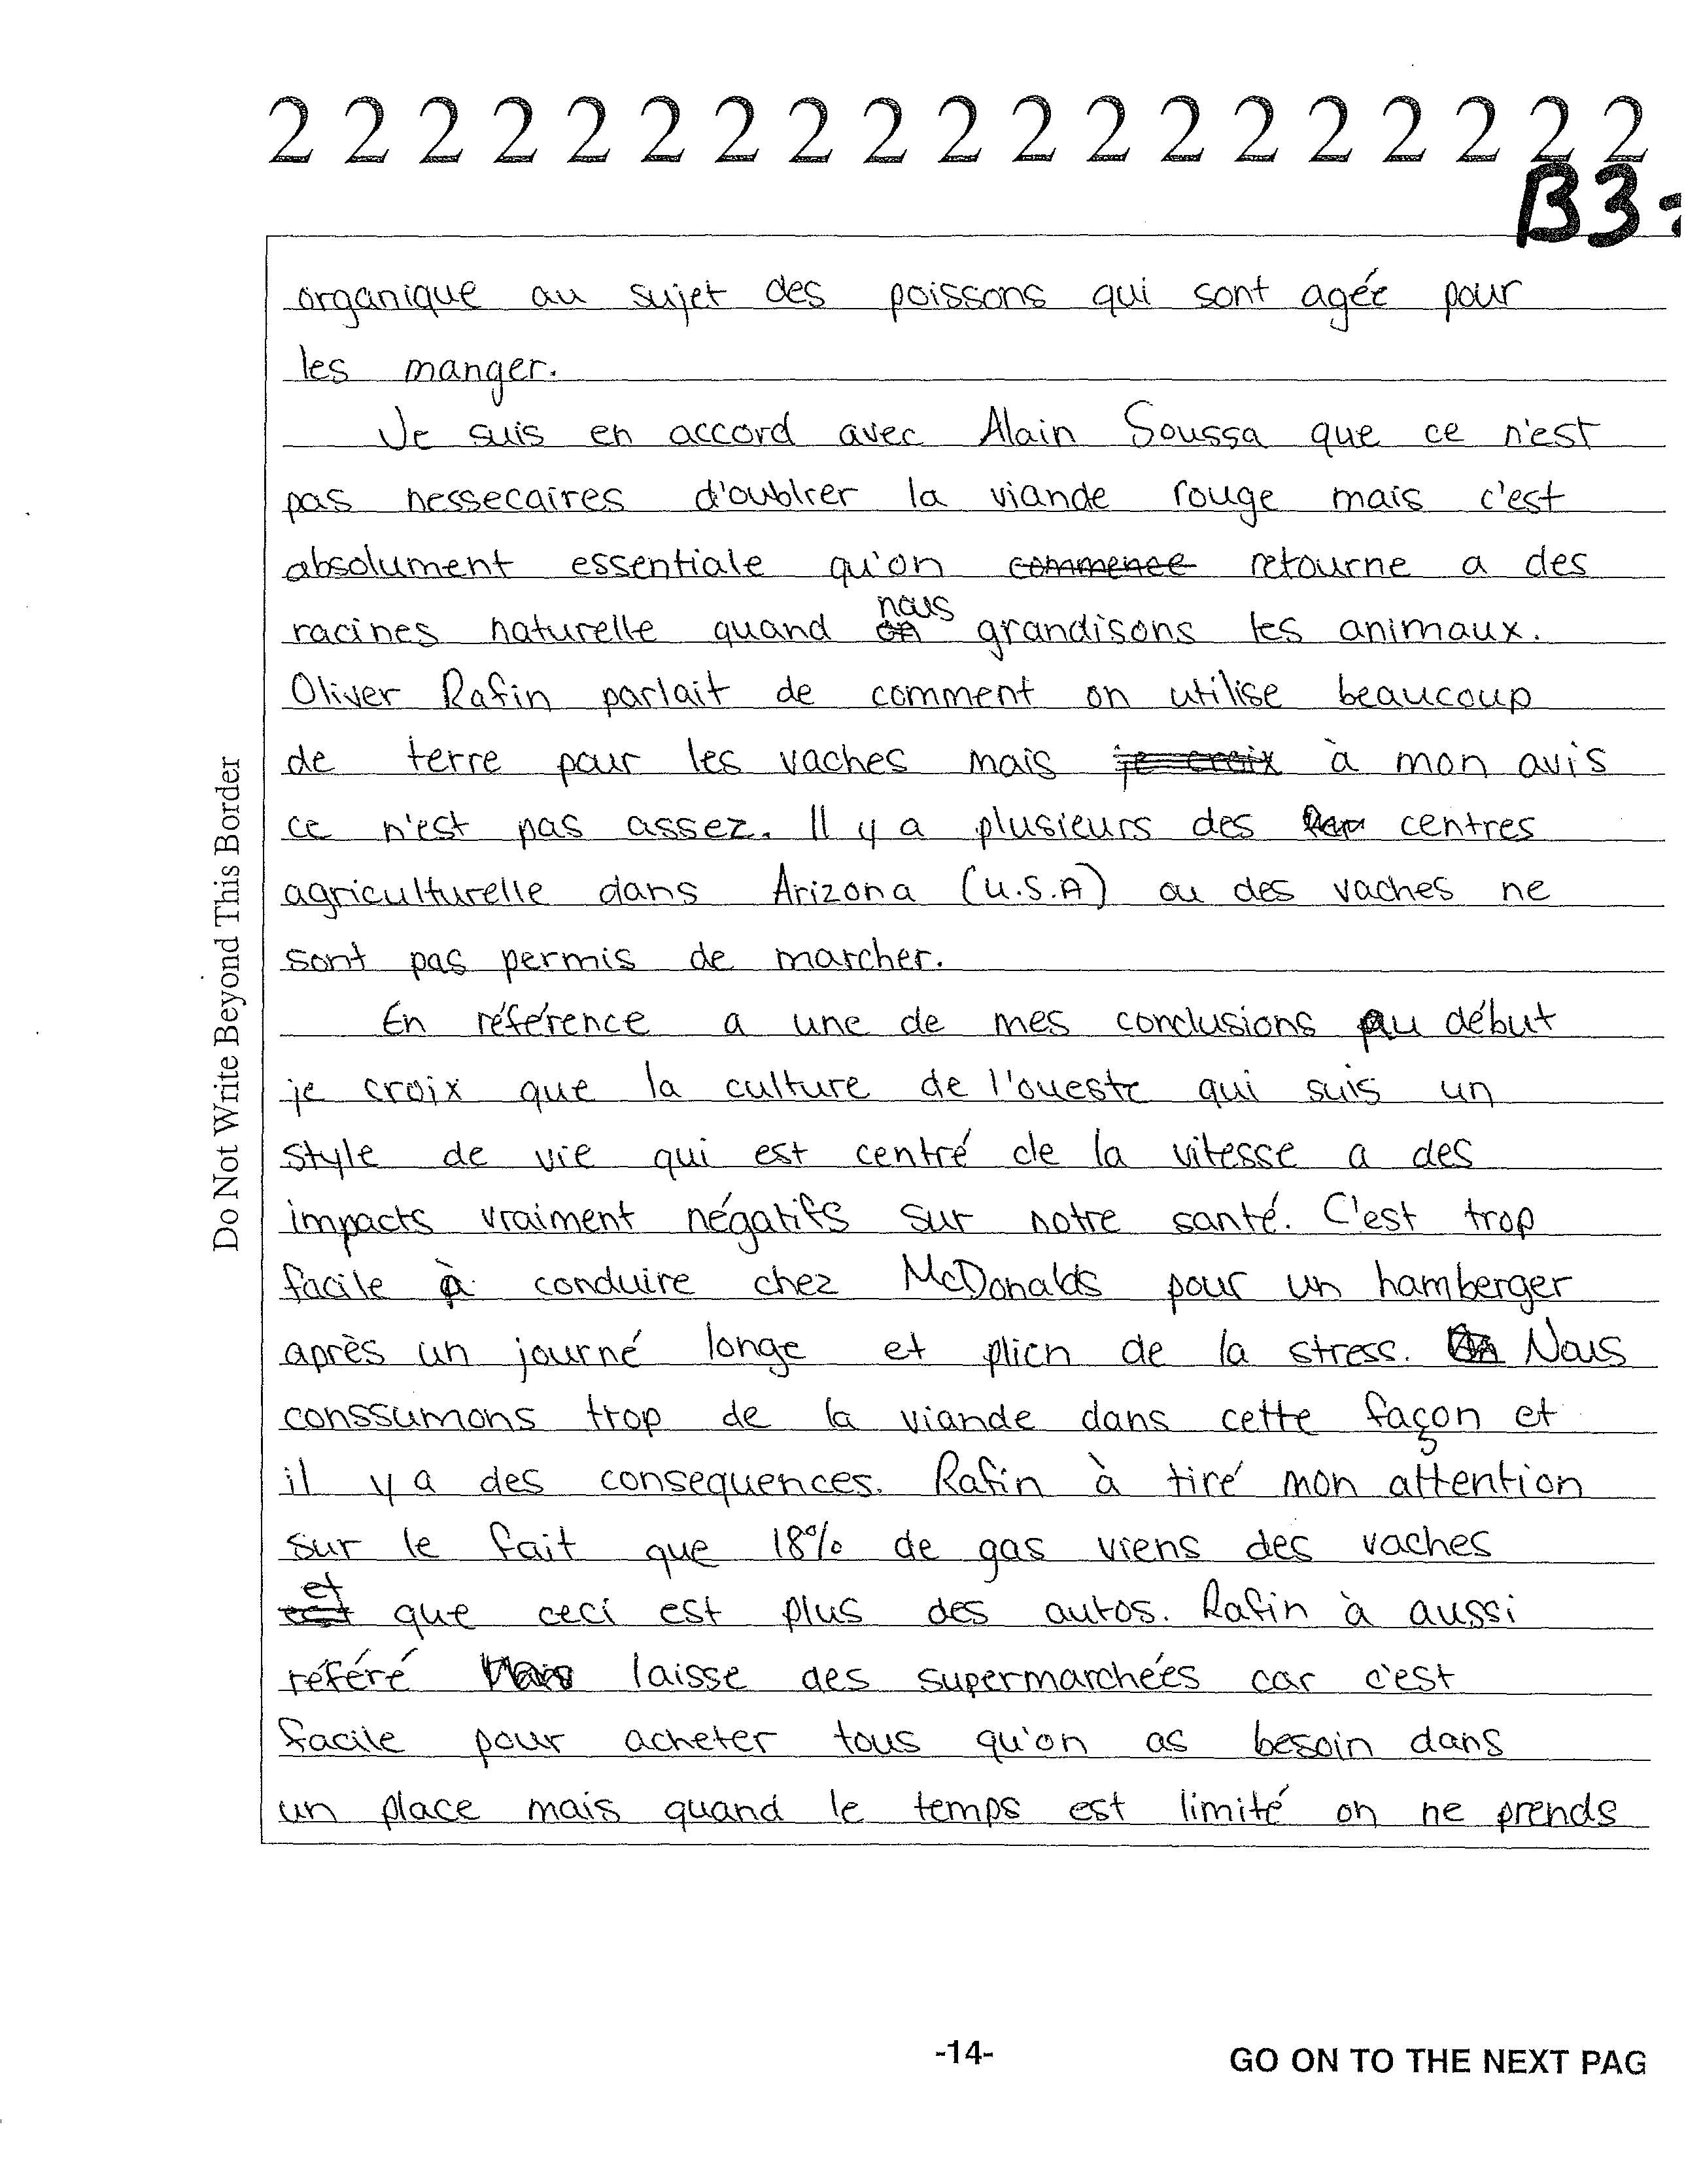 2 2 2 2 2 2 2 2 2 2 2 2 2 2 2 2 2 2 2
B3
organique au sujet des poissons qui sont agée pour
les manger.
Je suis en accord avec Alain Soussa que ce n'est
pas nessecaires d'oublier la viande rouge mais c'est
absolument essentiale qu'on commence retourne a des
racines naturelle quand on nous grandisons les animaux.
Oliver Rafin parlait de comment on utilise beaucoup
de terre pour les vaches mais je croix à mon avis
ce n'est pas assez. Il y a plusieurs des centres
agriculturelle dans Arizona (U.S.A) ou des vaches ne
sont pas permis de marcher.
En référence a une de mes conclusions au début
je croix que la culture de l'oueste qui suis un
style de vie qui est centré de la vitesse a des
impacts vraiment négatifs sur notre santé. C'est trop
facile à conduire chez McDonalds pour un hamberger
après un journé longe et plien de la stress. Nous
conssumons trop de la viande dans cette façon et
il y a des consequences. Rafin à tiré mon attention
sur le fait que 18% de gas viens des vaches
et que ceci est plus des autos. Rafin à aussi
référé laisse des supermarchées car c'est
facile pour acheter tous qu'on as besoin dans
un place mais quand le temps est limité on ne prends
Do Not Write Beyond This Border
-14-
GO ON TO THE NEXT PAG